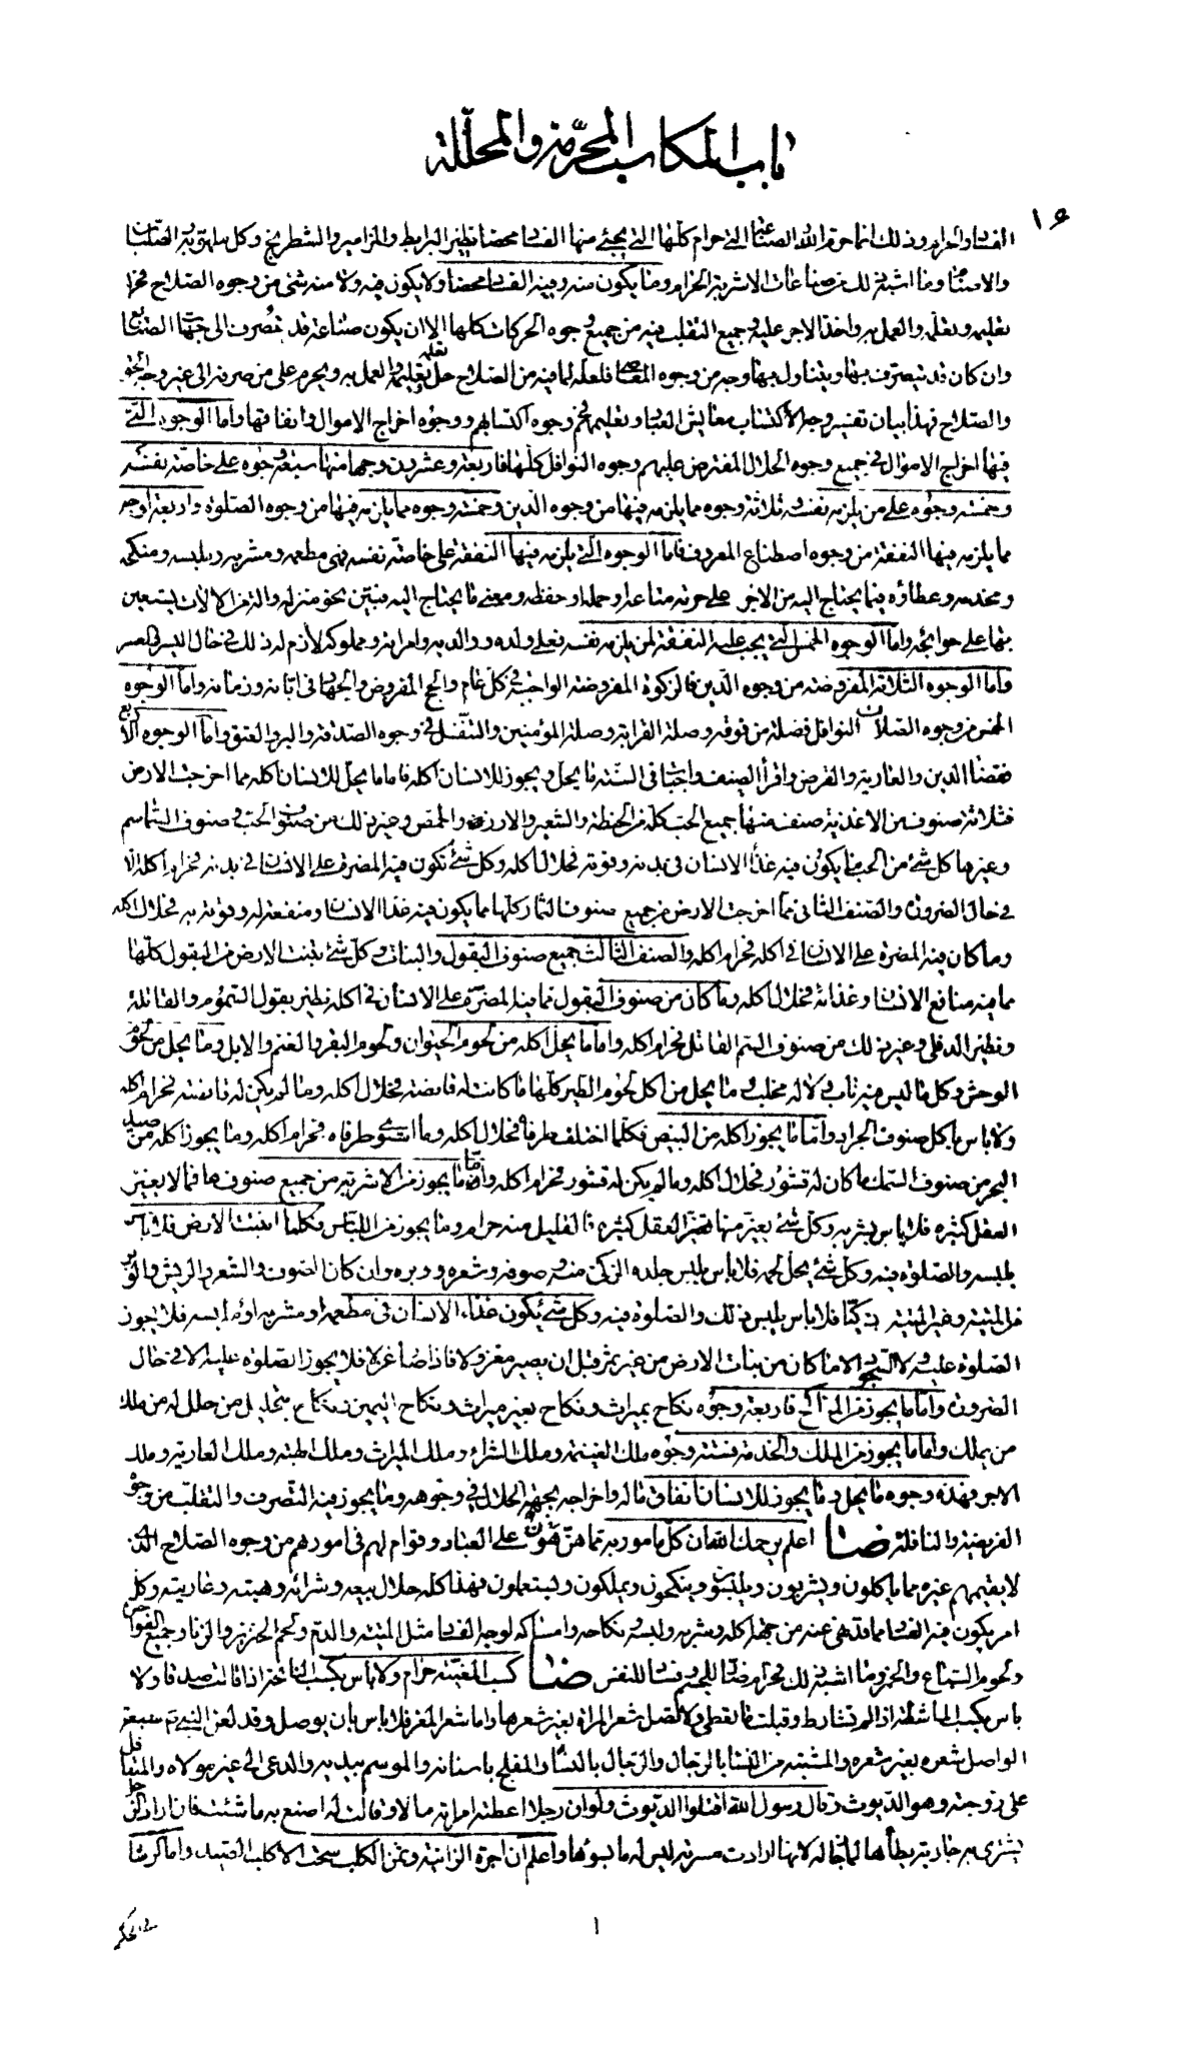 باب المكاسب المحرمة والمحللة
١۶
الفساد والحرام وذلك انما حرم الله الصناعة التي حرام كلها التي يجئ منها الفساد محضا نظير البرابط والمزامير والشطرنج وكل ملهو به الصلبان
والاصنام وما اشبه ذلك من صناعات الاشربة الحرام وما يكون منه وفيه الفساد محضا ولا يكون فيه ولا منه شئ من وجوه الصلاح فحرام
تعليمه وتعلمه والعمل به واخذ الاجر عليه وجميع التقلب فيه من جميع وجوه الحركات كلها الا ان يكون صناعة قد تصرف الى جهات الصنايع
وان كان قد يتصرف بها ويتناول بها وجه من وجوه المعاصي فلعله لما فيه من الصلاح حل تعلمه وتعليمه والعمل به ويحرم على من صرفه الى غير وجه الحق
والصلاح فهذا بيان تفسير وجه الاكتساب معايش العباد وتعليمهم في وجوه اكتسابهم ووجوه اخراج الاموال وانفاقها واما الوجوه التي
فيها اخراج الاموال في جميع وجوه الحلال المفترض عليهم ووجوه النوافل كلها فاربعة وعشرون وجها منها سبعة وجوه على خاصة نفسه
وخمسة وجوه على من يلزمه نفسه وثلاثة وجوه مما يلزمه فيها من وجوه الدين وخمسة وجوه مما يلزمه فيها من وجوه الصلوة واربعة اوجه
مما يلزمه فيها النفقة من وجوه اصطناع المعروف فاما الوجوه التي يلزمه فيها النفقة على خاصة نفسه فهي مطعمه ومشربه وملبسه ومنكحه
ومخدمه وعطاؤه فيما يحتاج اليه من الاجر على مرمة متاعه او حمله او حفظه ومعنى ما يحتاج اليه فبين نحو منزله والة من الالات يستعين
بها على حوائجه واما الوجوه الخمس التي يجب عليه النفقة لمن يلزمه نفسه فعلى ولده ووالديه وامراته ومملوكه لازم له ذلك في حال اليسر والعسر
واما الوجوه الثلاثة المفروضة من وجوه الدين فالزكوة المفروضة الواجبة في كل عام والحج المفروض والجهاد في ابانه وزمانه واما الوجوه
الخمس من وجوه الصلات النوافل فصلة من فوقه وصلة القرابة وصلة المؤمنين والتنفل في وجوه الصدقة والبر والعتق واما الوجوه الاربع
فقضاء الدين والعارية والقرض واقراء الضيف واجبات في السنة ما يحل ويجوز للانسان اكله فاما ما يحل للانسان اكله مما اخرجت الارض
فثلاثة صنوف من الاغذية صنف منها جميع الحب كله من الحنطة والشعير والارز والحمص وغير ذلك من صنوف الحب وصنوف السماسم
وغيرها كل شئ من الحب مما يكون فيه غذاء الانسان في بدنه وقوته فحلال اكله وكل شئ تكون فيه المضرة على الانسان في بدنه فحرام اكله الا
في حال الضرورة والصنف الثاني مما اخرجت الارض من جميع صنوف الثمار كلها مما يكون فيه غذا الانسان ومنفعة له وقوته به فحلال اكله
وما كان فيه المضرة على الانسان في اكله فحرام اكله والصنف الثالث جميع صنوف البقول والنبات وكل شئ تنبت الارض من البقول كلها
مما فيه منافع الانسان وغذائه فحلال اكله وما كان من صنوف البقول مما فيه المضرة على الانسان في اكله نظير بقول السموم والقاتلة
ونظير الدفلى وغير ذلك من صنوف السم القاتل فحرام اكله واما ما يحل اكله من لحوم الحيوان ولحوم البقر والغنم والابل وما يحل من لحوم
الوحش وكل ما ليس فيه ناب ولا له مخلب وما يحل من اكل لحوم الطير كلها ما كانت له قانصة فحلال اكله وما لم يكن له قانصة فحرام اكله
ولا باس باكل صنوف الجراد واما ما يجوز اكله من البيض فكلما اختلف طرفاه فحلال اكله وما استوى طرفاه فحرام اكله وما يجوز اكله من صيد
البحر من صنوف السمك ما كان له قشور فحلال اكله وما لم يكن له قشور فحرام اكله واما ما يجوز من الاشربة من جميع صنوفها فما لا يغير
العقل كثيره فلا باس بشربه وكل شئ يغير منها العقل كثيره فالقليل منه حرام وما يجوز من اللباس فكلما انبتت الارض فلا باس
بلبسه والصلوة فيه وكل شئ يحل لحمه فلا باس بلبس جلده الزكي منه وصوفه وشعره ووبره وان كان الصوف والشعر والريش والوبر
من الميتة وغير الميتة ذكيا فلا باس بلبس ذلك والصلوة فيه وكل شئ يكون غذاء الانسان في مطعمه او مشربه او ملبسه فلا يجوز
الصلوة عليه ولا السجود الا ما كان من نبات الارض من غير ثمر قبل ان يصير مغزولا فاذا صار غزلا فلا يجوز الصلوة عليه الا في حال
الضرورة واما ما يجوز من المناكح فاربعة وجوه نكاح بميراث ونكاح بغير ميراث ونكاح اليمين ونكاح بتحليل من حلل له من ملك
من يملك واما ما يجوز من الملك والخدمة فستة وجوه ملك الغنيمة وملك الشراء وملك الميراث وملك الهبة وملك العارية وملك
الاجر فهذه وجوه ما يحل وما يجوز للانسان انفاق ماله واخراجه بجهة الحلال في وجوهه وما يجوز فيه التصرف والتقلب من وجوه
الفريضة والنافلة ضا اعلم يرحمك الله ان كل مامور به مما هو من على العباد وقوام لهم في امورهم من وجوه الصلاح الذي
لا يقيمهم غيره مما ياكلون ويشربون ويلبسون وينكحون ويملكون ويستعملون فهذا كله حلال بيعه وشرائه وهبته وعاريته وكل
امر يكون فيه الفساد مما قد نهى عنه من جهة اكله وشربه ولبسه ونكاحه وامساكه لوجه الفساد مثل الميتة والدم ولحم الخنزير والزنا وجميع الفواحش
ولحوم السباع والخمر وما اشبه ذلك فحرام ضار للجسم وفساد للنفس ضا كسب المغنية حرام ولا باس بكسب النائحة اذا قالت صدقا ولا
باس بكسب الماشطة اذا لم تشارط وقبلت ما تعطى ولا تصل شعر المراة بغير شعرها واما شعر المعز فلا باس بان يوصل وقد لعن النبي سبعة
الواصل شعره بغير شعره والمتشبه من النساء بالرجال والرجال بالنساء والمفلج باسنانه والموسم ببدنه والدعي الى غير مولاه والمتغافل
على زوجته وهو الديوث وقال رسول الله اقتلوا الديوث ولو ان رجلا اعطته امراته مالا وقالت له اصنع به ما شئت فان اراد الرجل
يشتري به جارية يطأها لما جاز له لانها ارادت مسرته ليس له ما يسوءها واعلم ان اجرة الزانية وثمن الكلب سحت الا كلب الصيد واما الرشا
١
في الحكم